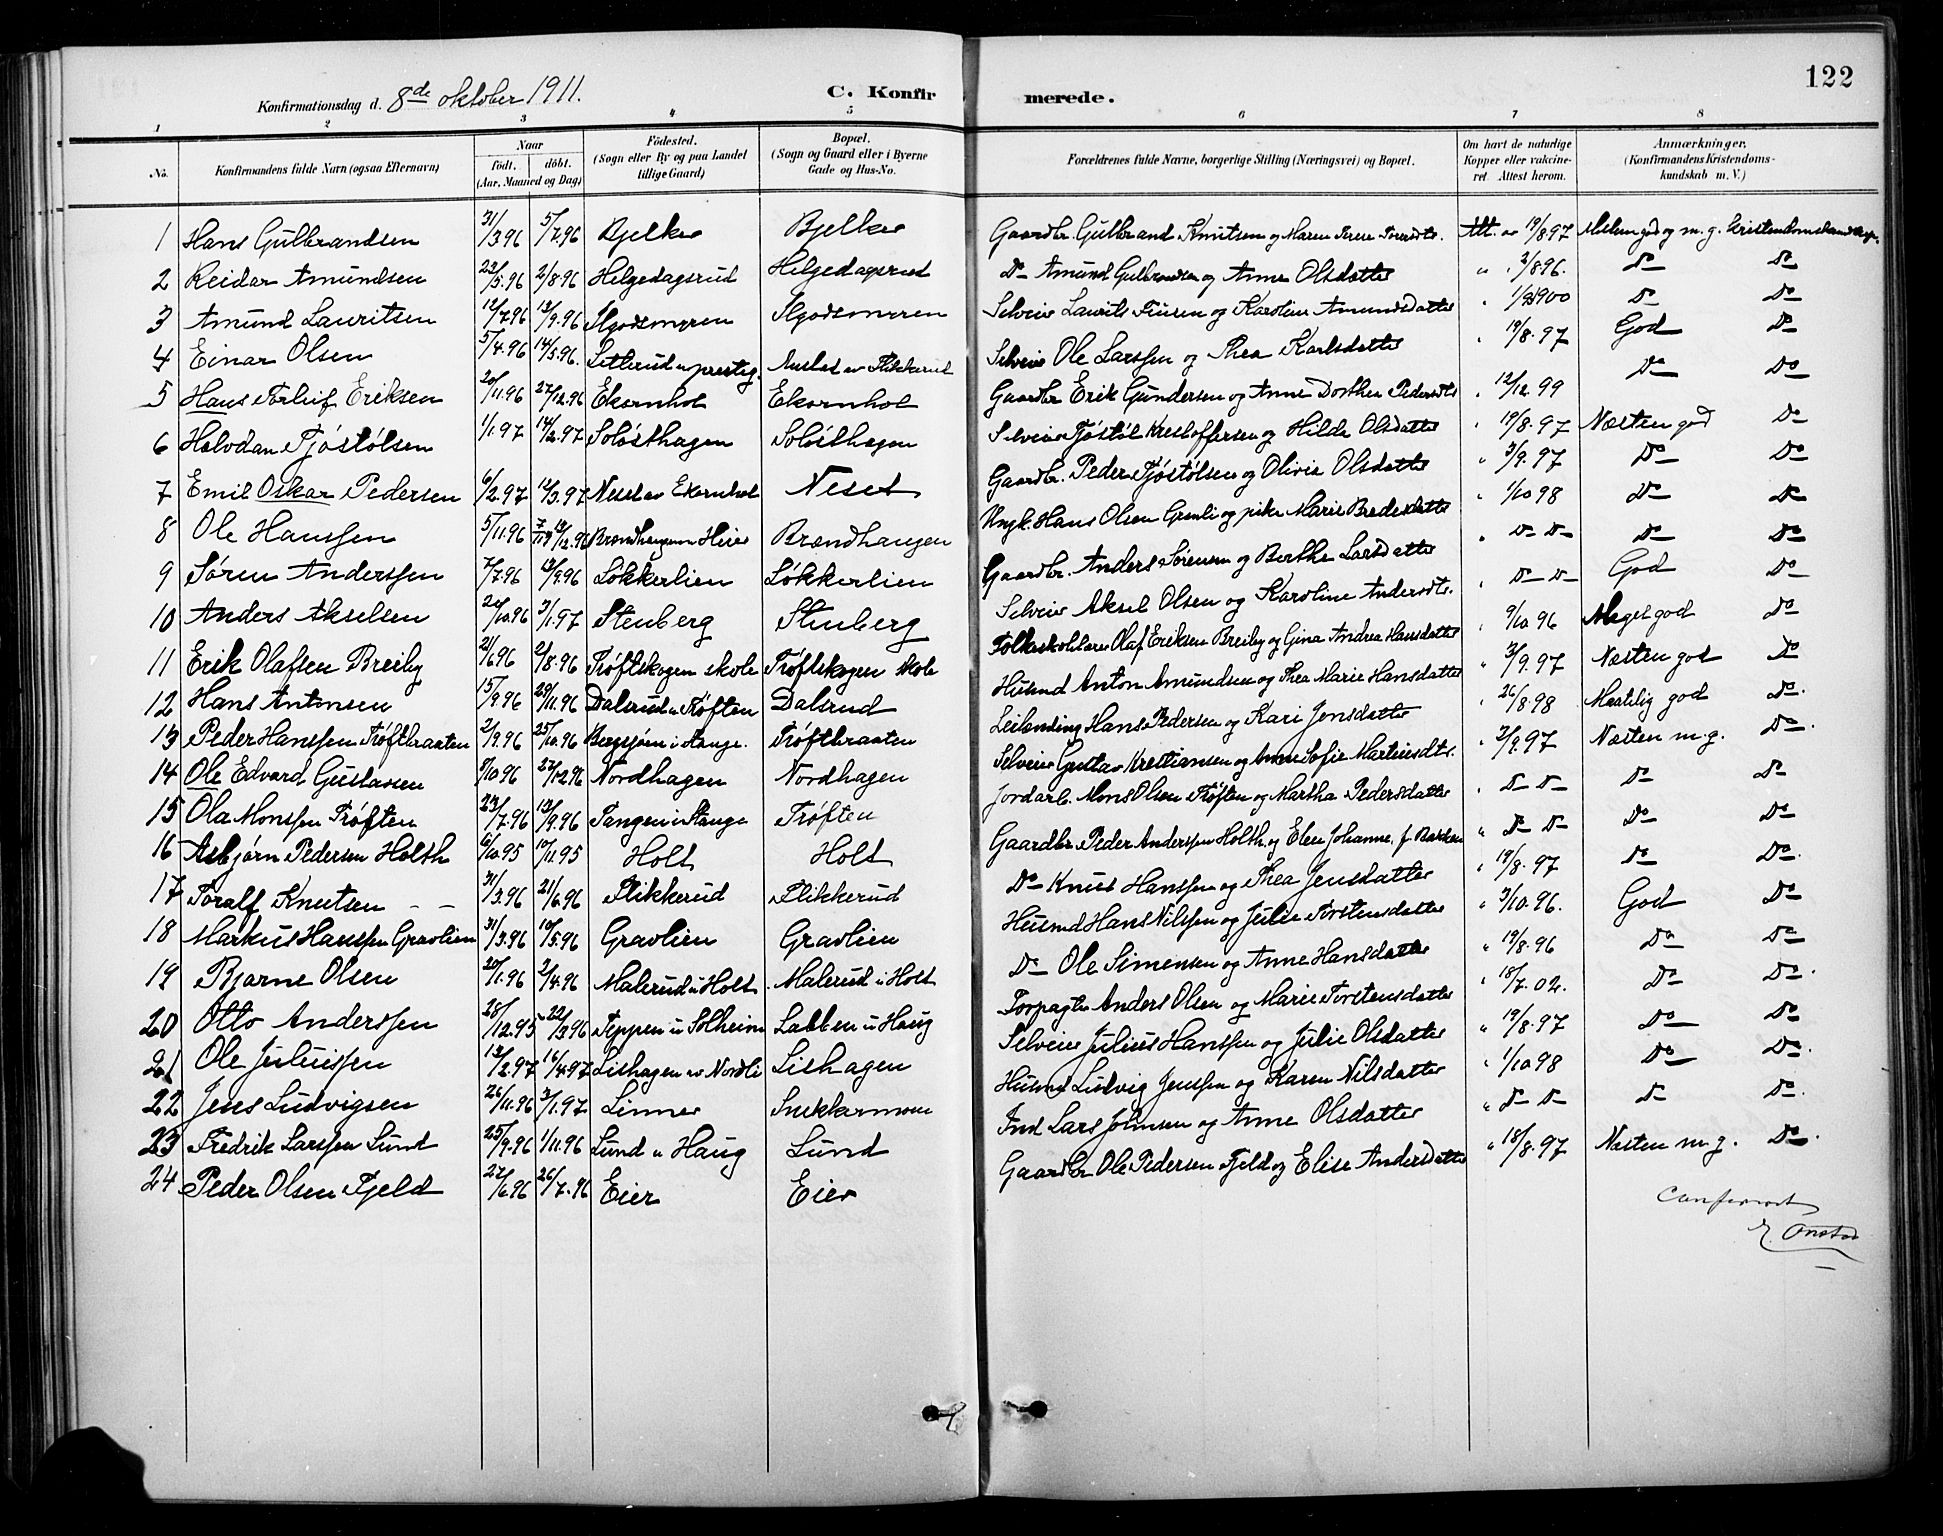 122
Konfirmationsdag d. 8de oktober 1911.
C. Konfirmerede.
1 2 3 4 5 6 7 8
No. Konfirmandens fulde Navn (ogsaa Efternavn) Naar födt. döbt. (Aar, Maaned og Dag) Födested. (Sogn eller By og paa Landet tillige Gaard) Bopæl. (Sogn og Gaard eller i Byerne Gade og Hus-No. Forældrenes fulde Navne, borgerlige Stilling (Næringsvei) og Bopæl. Om havt de naturlige Kopper eller vakcineret. Attest herom. Anmærkninger. (Konfirmandens Kristendomskundskab m. V.)
1 Hans Gulbrandsen 31/3 96 5/7 96 Bjelke Bjelke Gaardbr. Gulbrand Knutsen og Maren Att. av 19/8 97 god og m.g. kristendomskundskap.
2 Reidar Amundsen 22/5 96 2/8 96 Helgedagsrud Helgedagsrud Do Amund Gulbrandsen og Anne Olsdatter " 2/8 96. Do Do
3 Amund Lauritsen 12/7 96 13/9 96 Selveier Laurits og Karoline Amundsdatter " Do Do
4 Einar Olsen 5/4 96 14/5 96. Setterud u. prestg. av Flikkerud Selveier Ole Larssen og Thea Karlsdatter " 19/8 97 God Do
5 Hans Torleif Eriksen 20/11 96 27/12 96 Ekornhol Ekornhol Gaardbr Erik Gundersen og Anne Dorthea Pedersdtr " 12/12 99 Do Do
6 Halvdan Tjöstölsen 1/1 97 14/2 97 Solösthagen Solösthagen Selveier Tjöstöl Kristoffersen og Hilda Olsdatter " 19/8 97 Næsten god Do
7 Emil Oskar Pedersen 6/2 97 Neset av Ekornhol Neset Gaardbr. Peder Tjöstölsen og Olivia Olsdatter " 3/9 97 Do Do
8 Ole Hanssen 5/11 96 Brændhaugen Brændhaugen Ungk. Hans Olsen Grenli og pike Marie " 1/10 98 Do Do
9 Sören Anderssen 7/7 96 13/9 96 Lökkerlien Lökkerlien Gaardbr. Anders Sörensen og Berthe Larsdatter " Do Do Do Do
10 Anders Akselsen 20/10 96 3/1 97 Stenberg Stenberg Selveier Aksel Olsen og Karoline Andersdtr. " Do Do God Do
11 Erik Olafsen Breiby 21/6 96 2/8 96 Tröftskogen skole Tröftskogen skole Folkeskolelærer Olaf Eriksen Breiby og Gina Andrea Hansdatter 9/10 96 Meget god Do
12 Hans Antonsen 15/9 96 29/11 96 Dalsrud u. Tröften Dalsrud Husmd Anton Amundsen og Thea Marie Hansdatter " 3/9 97 Næsten god Do
13 Peder Hanssen Tröftbraaten 2/9 96 25/10 96 Bergsjöen i Stange. Tröftbraaten Leilending Hans Pedersen og Kari Jensdatter " 26/8 98 Maatelig god Do
14 Ole Edvard Gustavsen 8/10 96 27/12 96 Nordhagen Nordhagen Selveier Gustav Kristiansen og Anne Sofie Martinsdtr. " 2/9 97 Næsten m.g. Do
15 Ola Monssen Tröften 23/7 96 13/9 96 Tangen i Stange Tröften Jordarb. Mons Olsen Tröften og Martha Pedersdatter " Do Do Do Do
16 Asbjörn Pedersen Holth 6/10 95 10/11 95 Holt Holt Gaardbr Peder Anderssen Holth og Elen Johanne, f. Bakken " Do Do Do Do
17 Toralf Knutsen - - 31/3 96 21/6 96 Flikkerud Flikkerud Do Knut Hanssen og Thea Jensdatter " 19/8 97 Do Do
18 Markus Hanssen Gravlien 31/3 96 10/5 96 Gravlien Gravlien Husmd Hans Nilssen og Julie Torstensdatter " 3/10 96. God Do
19 Bjarne Olsen 20/1 96 2/4 96 Malerud u. Holt Malerud u. Holt Do Ole Simensen og Anne Hansdatter " 19/8 96 Do Do
20 Otto Anderssen 28/12 95 22/3 96 Teppen u Solheim Labben u Haug Forpagter Anders Olsen og Marie Torstensdatter " 18/7. 02. Do Do
21 Ole Juliussen 13/2 97 16/4 97 Lishagen av Nordli Lishagen Selveier Julius Hanssen og Julie Olsdatter " 19/8 97 Do Do
22 Jens Ludvigsen 26/11 96 3/1 97 Linner Snekkermoen Husmd Ludvig Jenssen og Karen Nilsdatter " 1/10 98 Do Do
23 Fredrik Larssen Lund 25/9 96 1/11 96 Lund u Haug Lund Ind Lars Johnsen og Anne Olsdatter " Do Do Do Do
24 Peder Olsen Fjeld 27/6 96 26/7 96 Eier Eier Gaardbr Ole Pedersen Fjeld og Elise Andersdatter " 18/8 97 Næsten m.g. Do
Conferert
E. Onstad